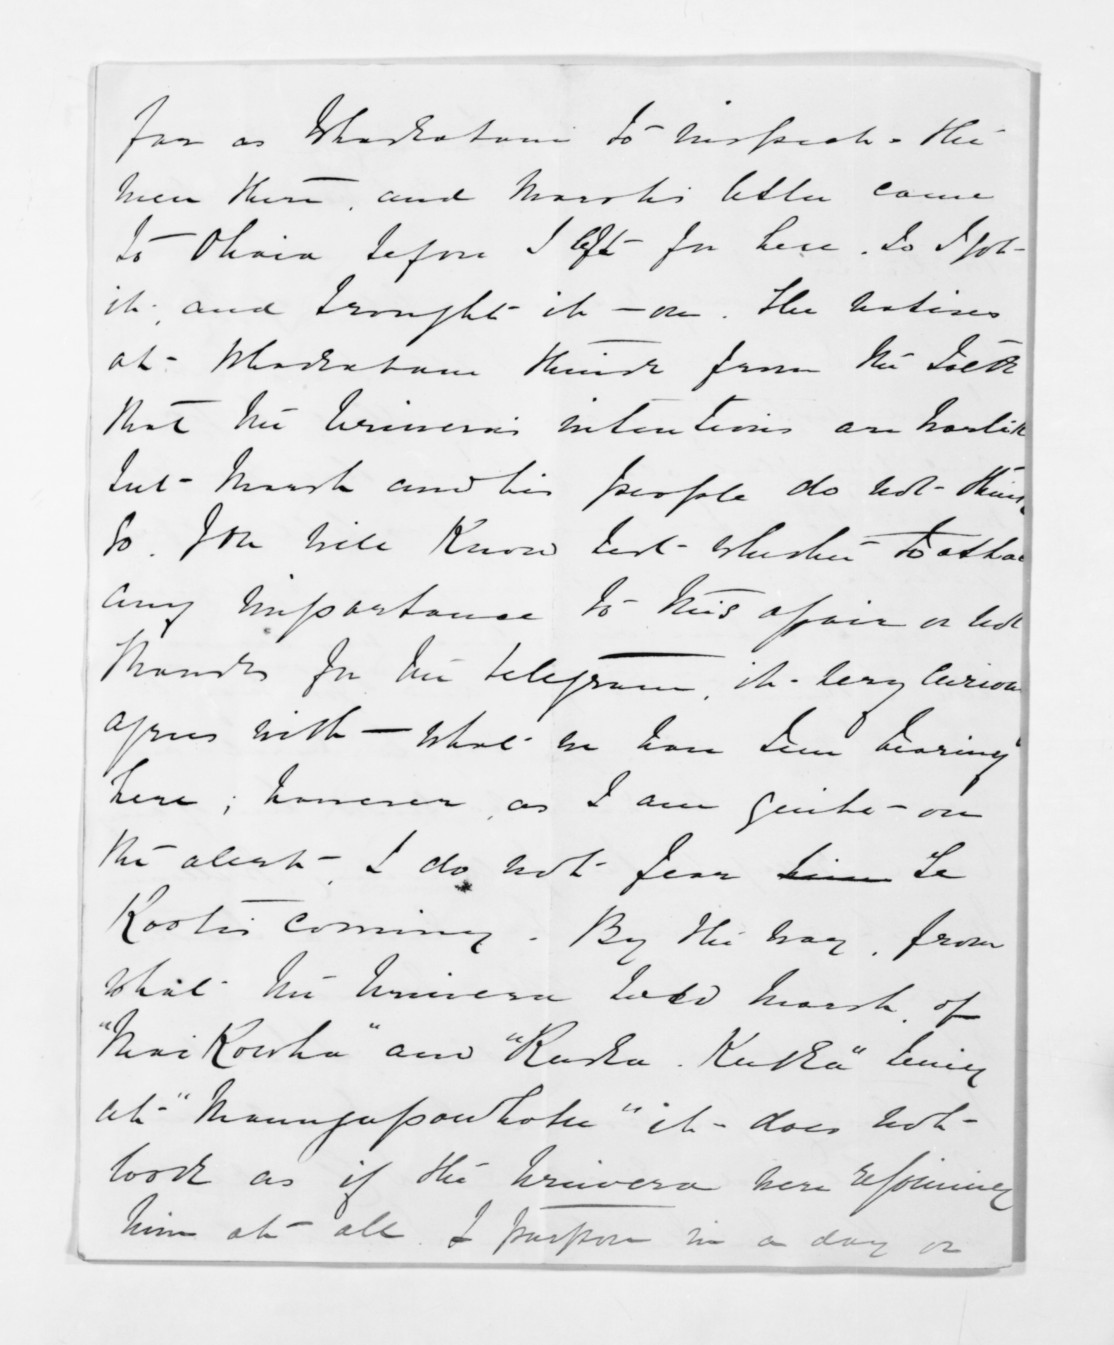 far as Whakatane to inspect the
men there, and Marsh's letter came
to Ohiwa before I left for here. So I got
it, and brought it on. The natives
at Whakatane think from the talk
that the Urewera's intentions are warlike
but Marsh and his people do not think
so. You will know best whether to attach
any importance to this affair or not
Thanks for the telegram, it very curiou
agrees with what we have been hearing
here; however, as I am quite on
the alert, I do not fear Te
Kooti's coming. By the way, from
what the Urewera told Marsh, of
" and " being
at "Maungapowhatu" it does not
look as if the Urewera were rejoining
him at all. I purpose in a day or